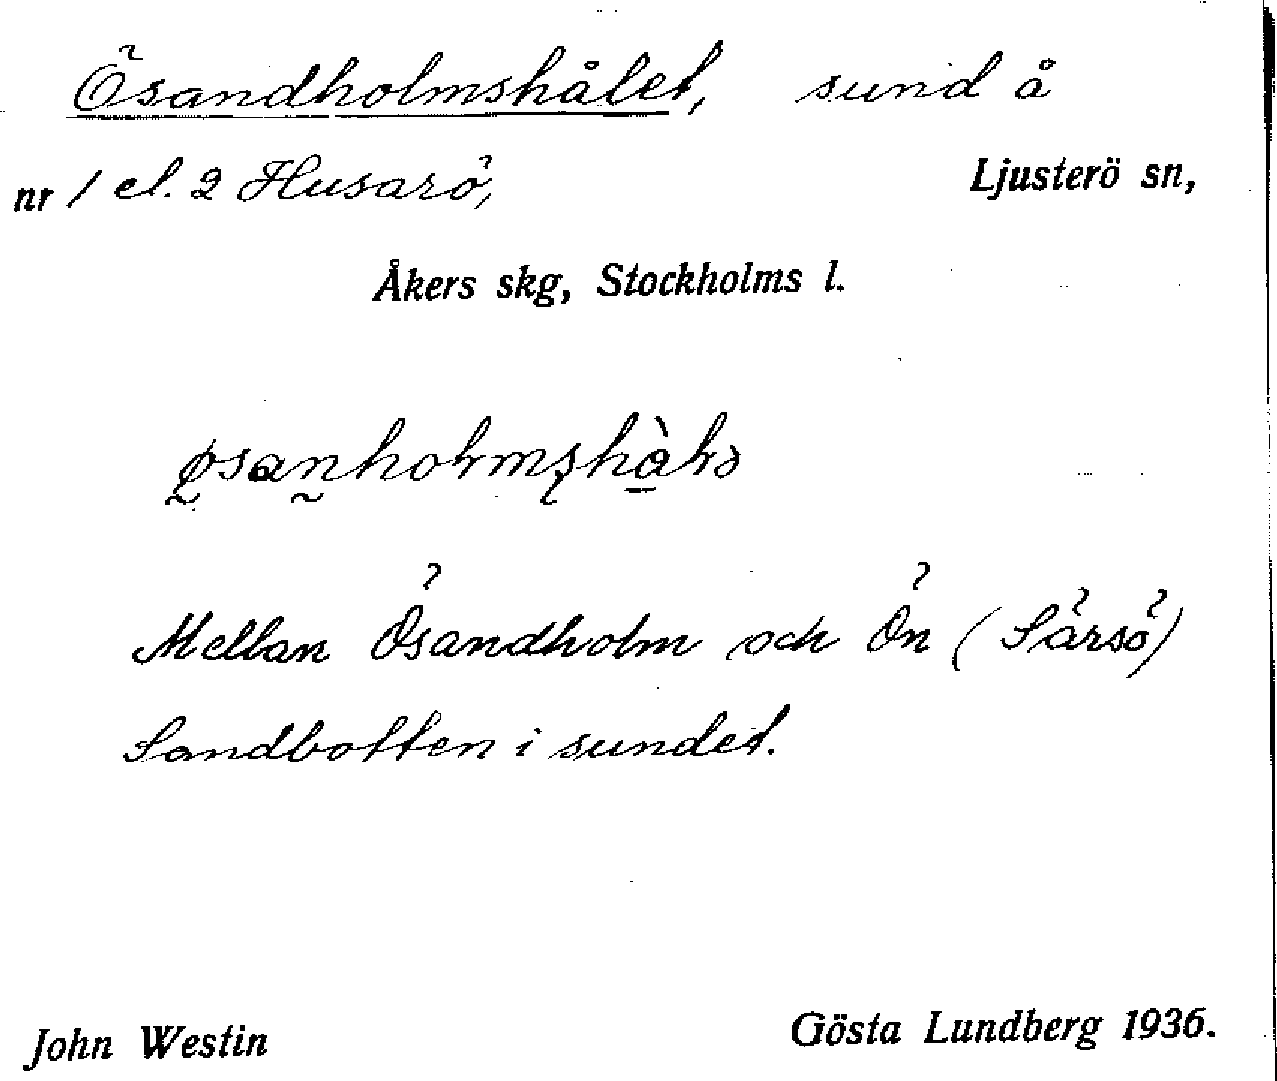 Ösandholmshålet, sund å
nr 1 el. 2 Husarö, Ljusterö sn,
Åkers skg, Stockholms l.
Mellan Ösandholm och Ön (Särsö)
Sandbotten i sundet.
John Westin Gösta Lundberg 1936.